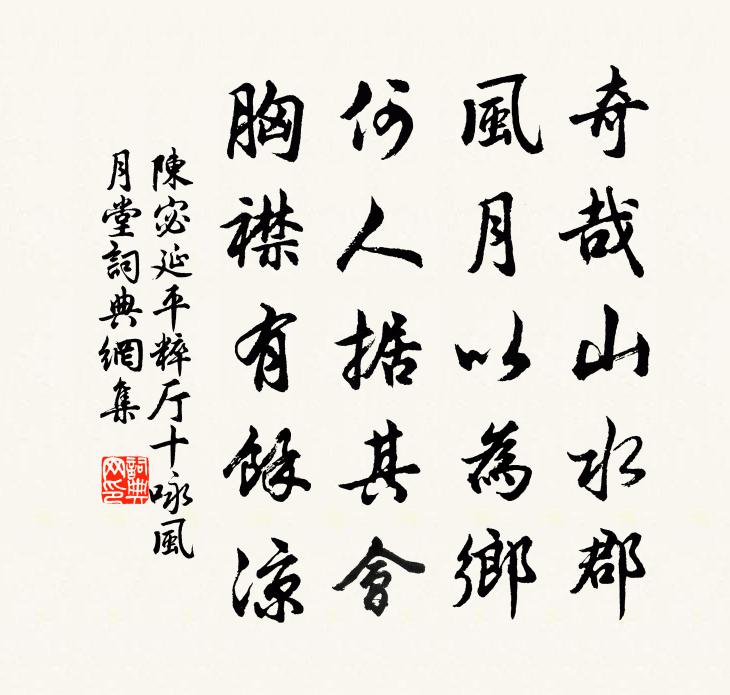 奇哉山水郡
風月以為鄉
何人据其會
胸襟有餘涼
陳宓延平粹厅十咏風
月堂詞典網集
詞典網印